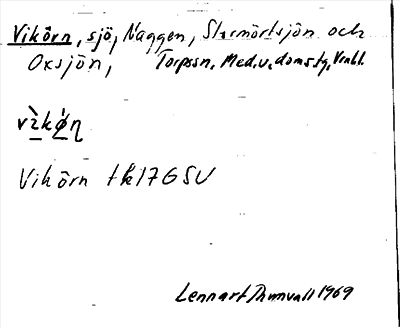 Vikörn, sjö, Naggen, Starmörtsjön och
Oxsjön, Torpssn, Med.v. domstg, Vnbl.
vìkǿn
Vikörn tk17GSV
Lennart Thunvall 1969